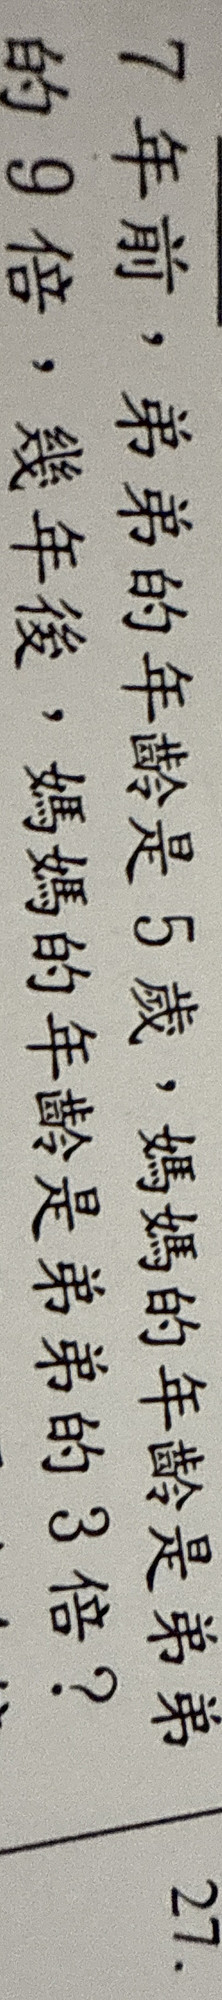 7 年前，弟弟的年齡是 5 歲，媽媽的年齡是弟弟
的 9 倍，幾年後，媽媽的年齡是弟弟的 3 倍？
27.